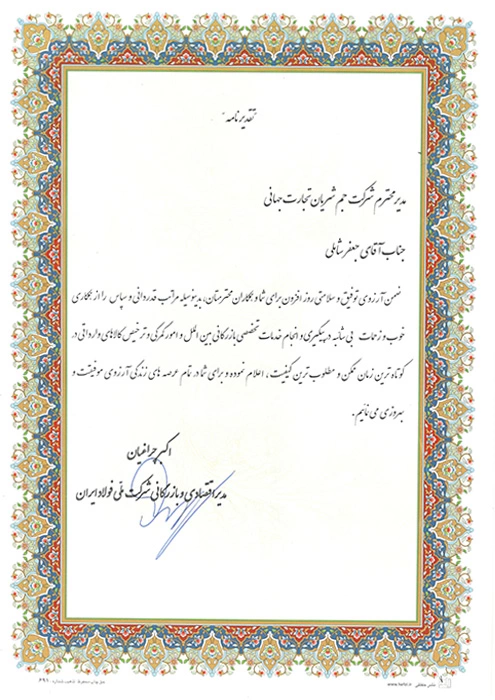 "تقدیر نامه"
مدیر محترم شرکت جم شریان تجارت جهانی
جناب آقای جعفر شاملی
ضمن آرزوی توفیق و سلامتی روز افزون برای شما و همکاران محترمتان، بدینوسیله مراتب قدردانی و سپاس را از همکاری
خوب و زحمات بی شائبه در پیگیری و انجام خدمات تخصصی بازرگانی بین الملل و امور گمرکی و ترخیص کالاهای وارداتی در
کوتاه ترین زمان ممکن و مطلوب ترین کیفیت، اعلام نموده و برای شما در تمام عرصه های زندگی آرزوی موفقیت و
بهروزی می نمائیم.
اکبر چراغیان
مدیر اقتصادی و بازرگانی شرکت ملی فولاد ایران